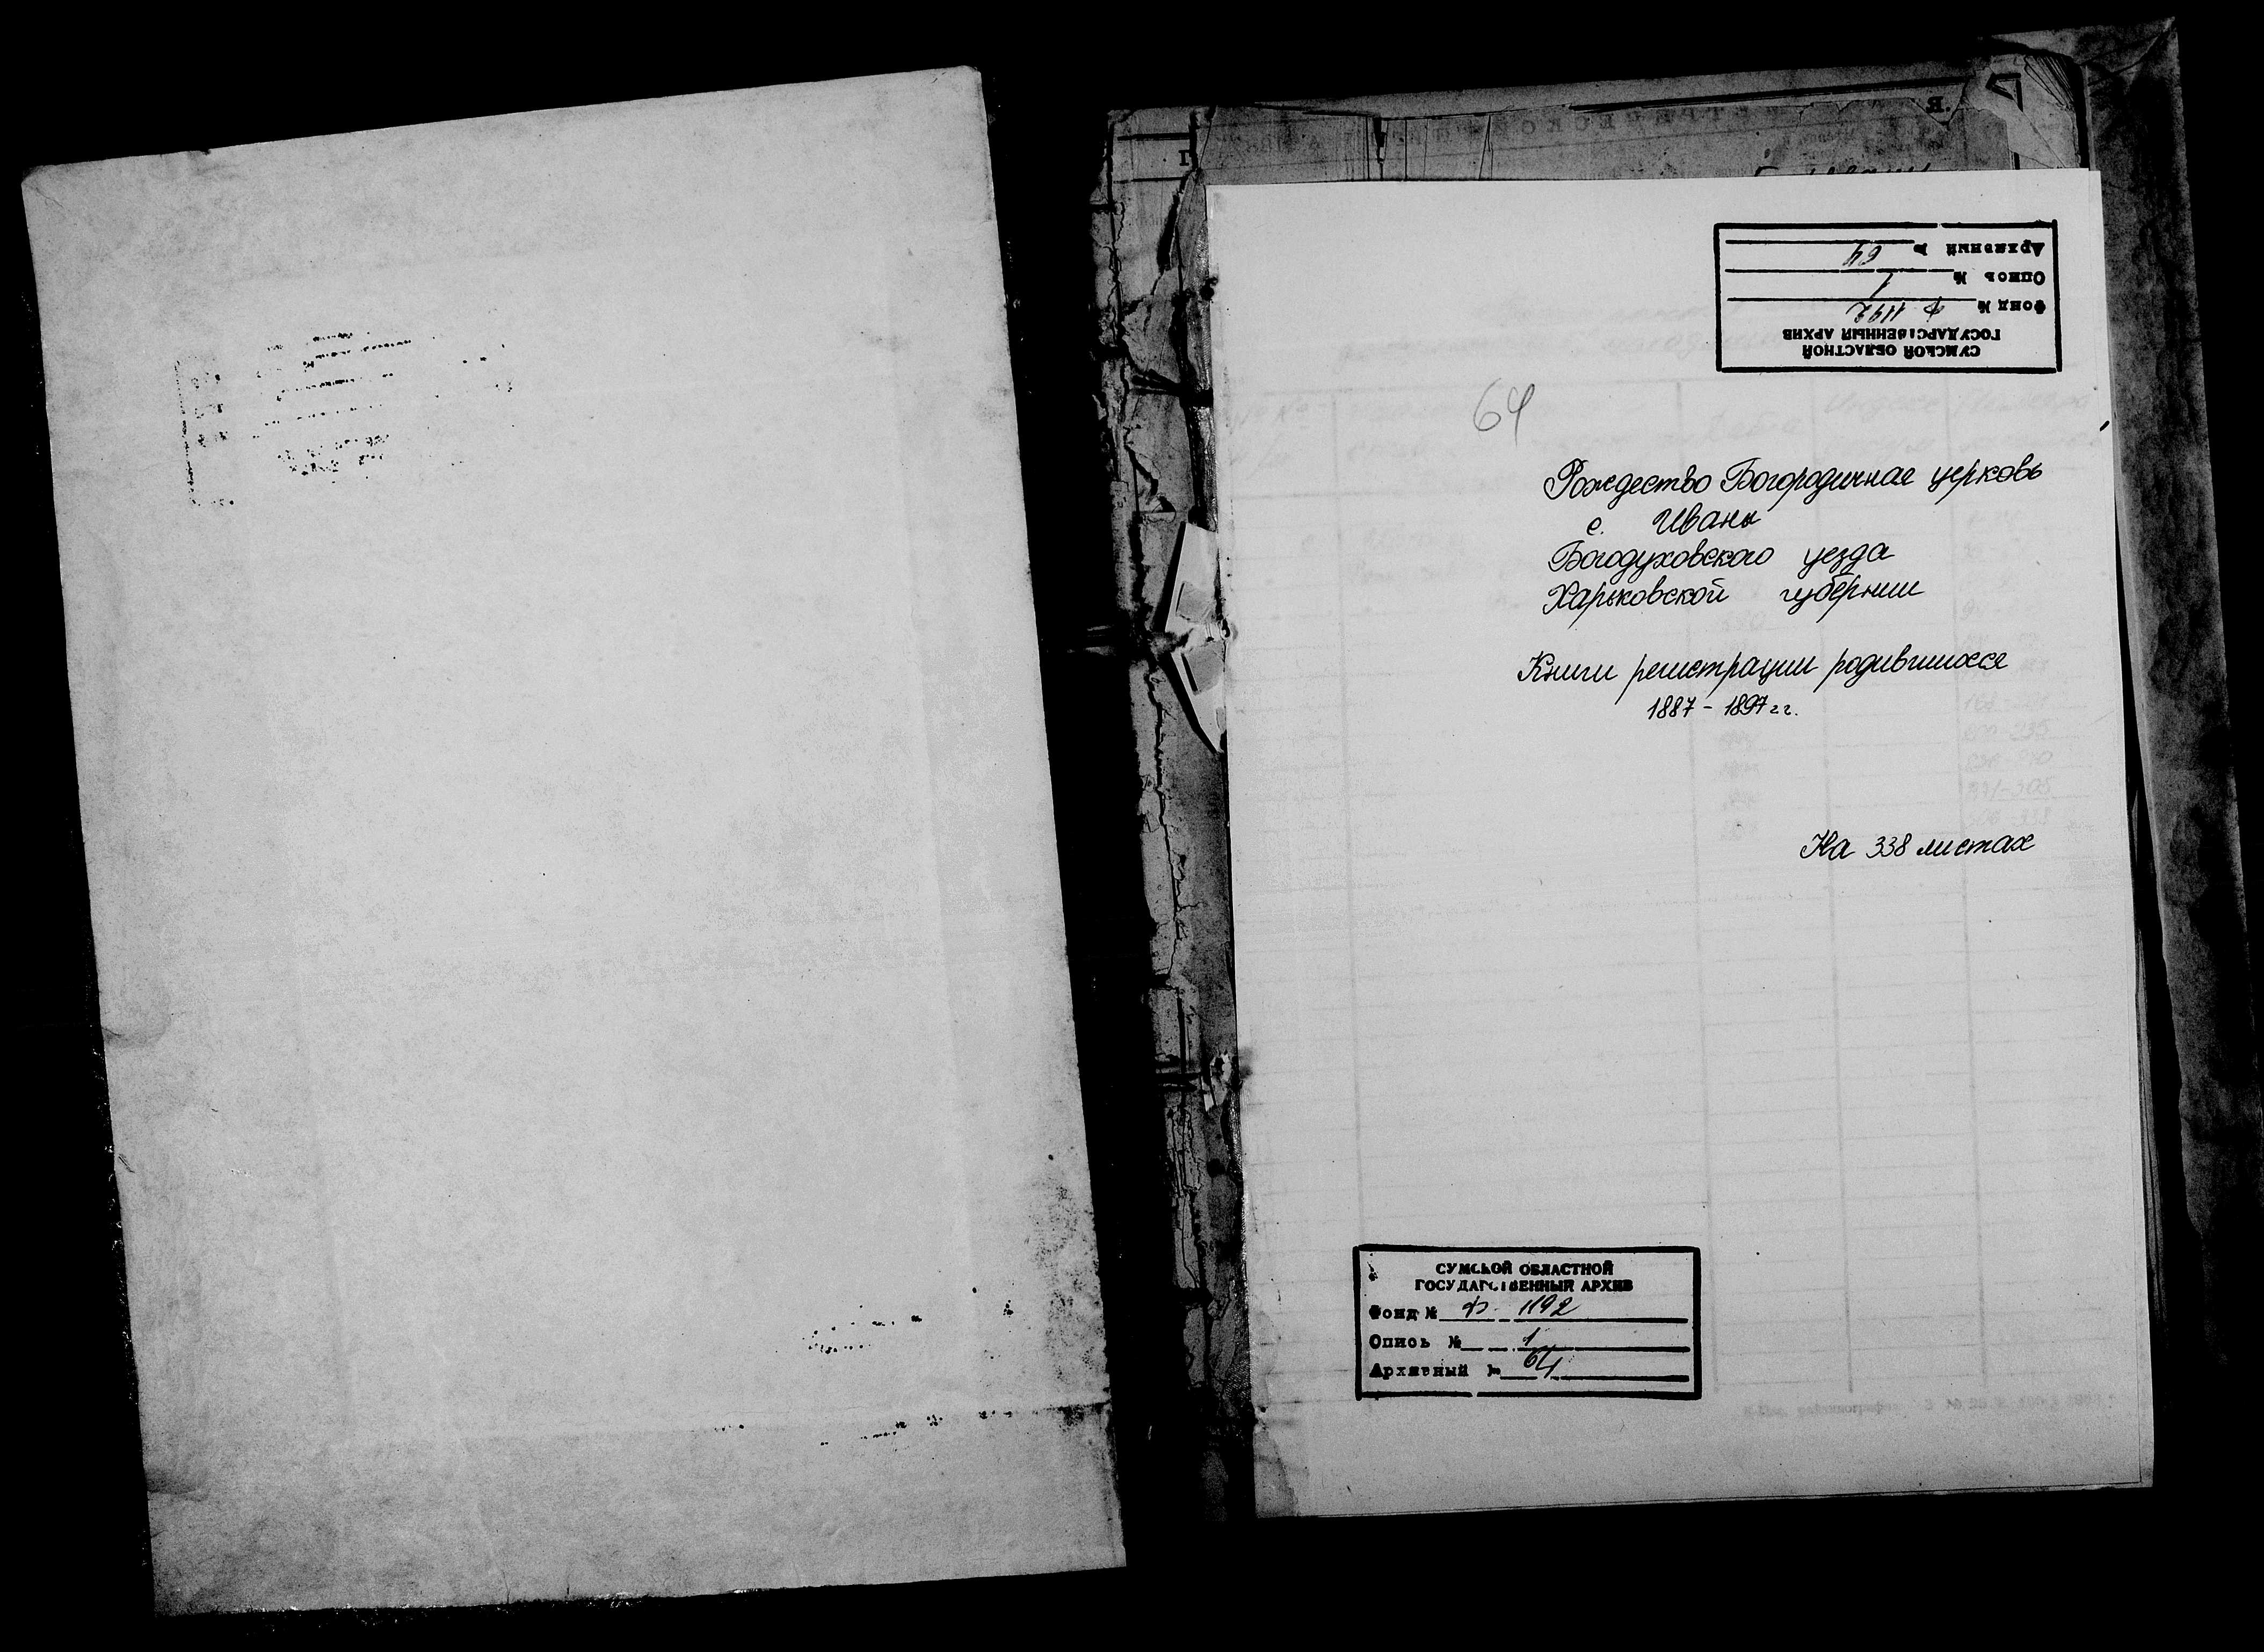 Архивный № 64
Опись № 1
Фонд № Ф 1192
ГОСУДАРСТВЕННЫЙ АРХИВ
СУМСКОЙ ОБЛАСТНОЙ
64
Рождество Богородичная церковь
с. Иваны
Богодуховского уезда
Харьковской губернии
Книги регистрации родившихся
1887 - 1897 г г.
На 338 листах
СУМСКОЙ ОБЛАСТНОЙ
ГОСУДАРСТВЕННЫЙ АРХИВ
Фонд № Ф. 1192
Опись № 1
Архивный № 64